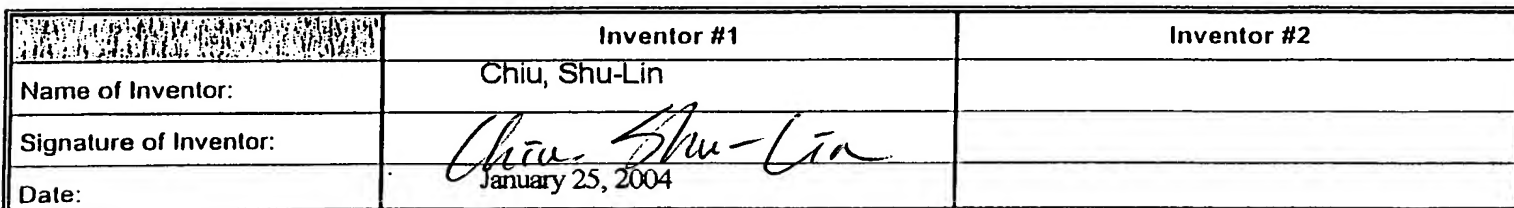 Inventor #1 Inventor #2
Name of Inventor: Chiu, Shu-Lin
Signature of Inventor: Chiu. Shu-Lin
Date: January 25, 2004